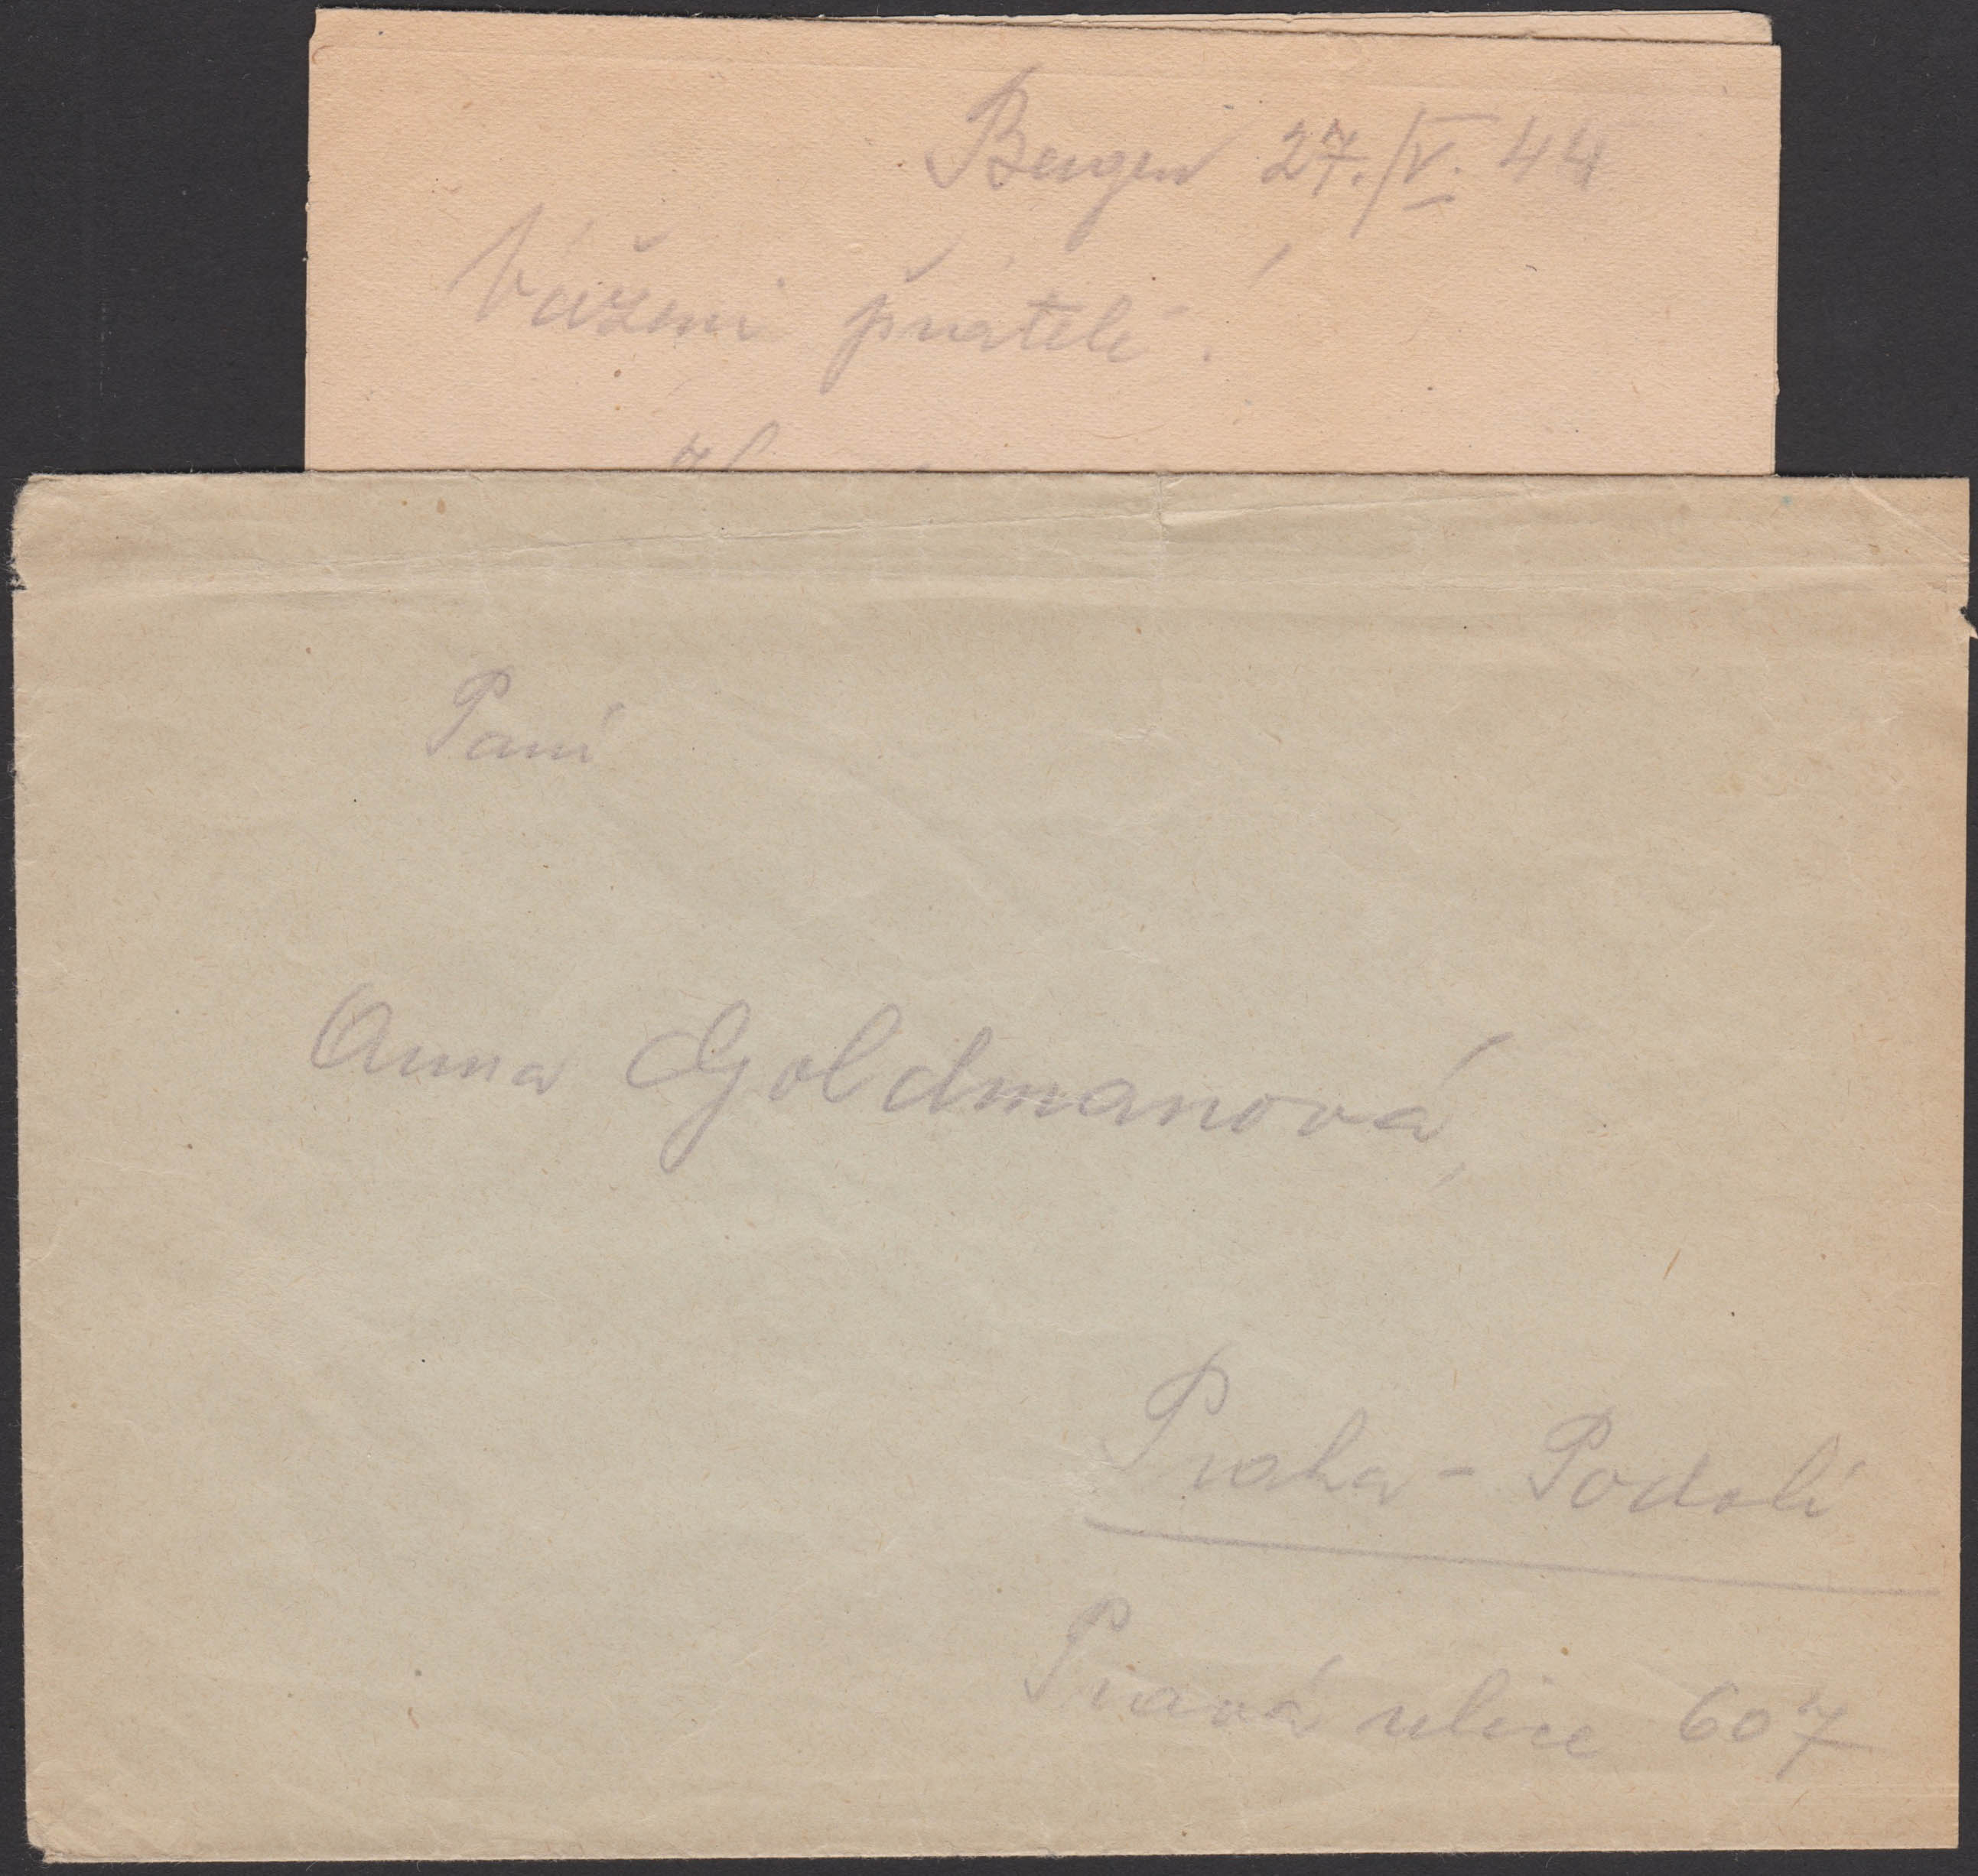 Bergen 27./V. 44
Vážení přátelé!
Paní
Anna Goldmanová,
Praha - Podolí
Pravá ulice 607